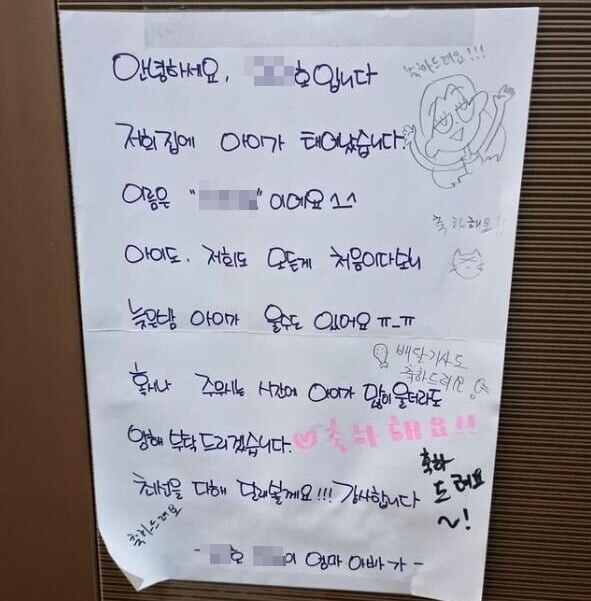 안녕하세요. 호입니다
축하드려요!!!
저희 집에 아이가 태어났습니다.
이름은 " " 이에요 ^_^
축하해요!!
아이도. 저희도 모든게 처음이다보니
늦은밤 아이가 울수도 있어요 ㅠ_ㅠ
배달기사도
축하드려요
혹시나 주무시는 시간에 아이가 많이 울더라도
양해 부탁드리겠습니다.
♡축하해요!!
축하
드려요
~!
최선을 다해 달래볼께요!!! 감사합니다
축하드려요
- 호 이 엄마 아빠가 -